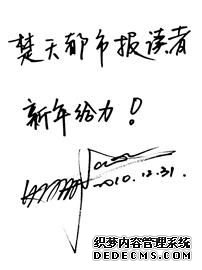 楚天都市报读者
新年给力！
2010.12.31.
织梦内容管理系统
DEDECMS.COM